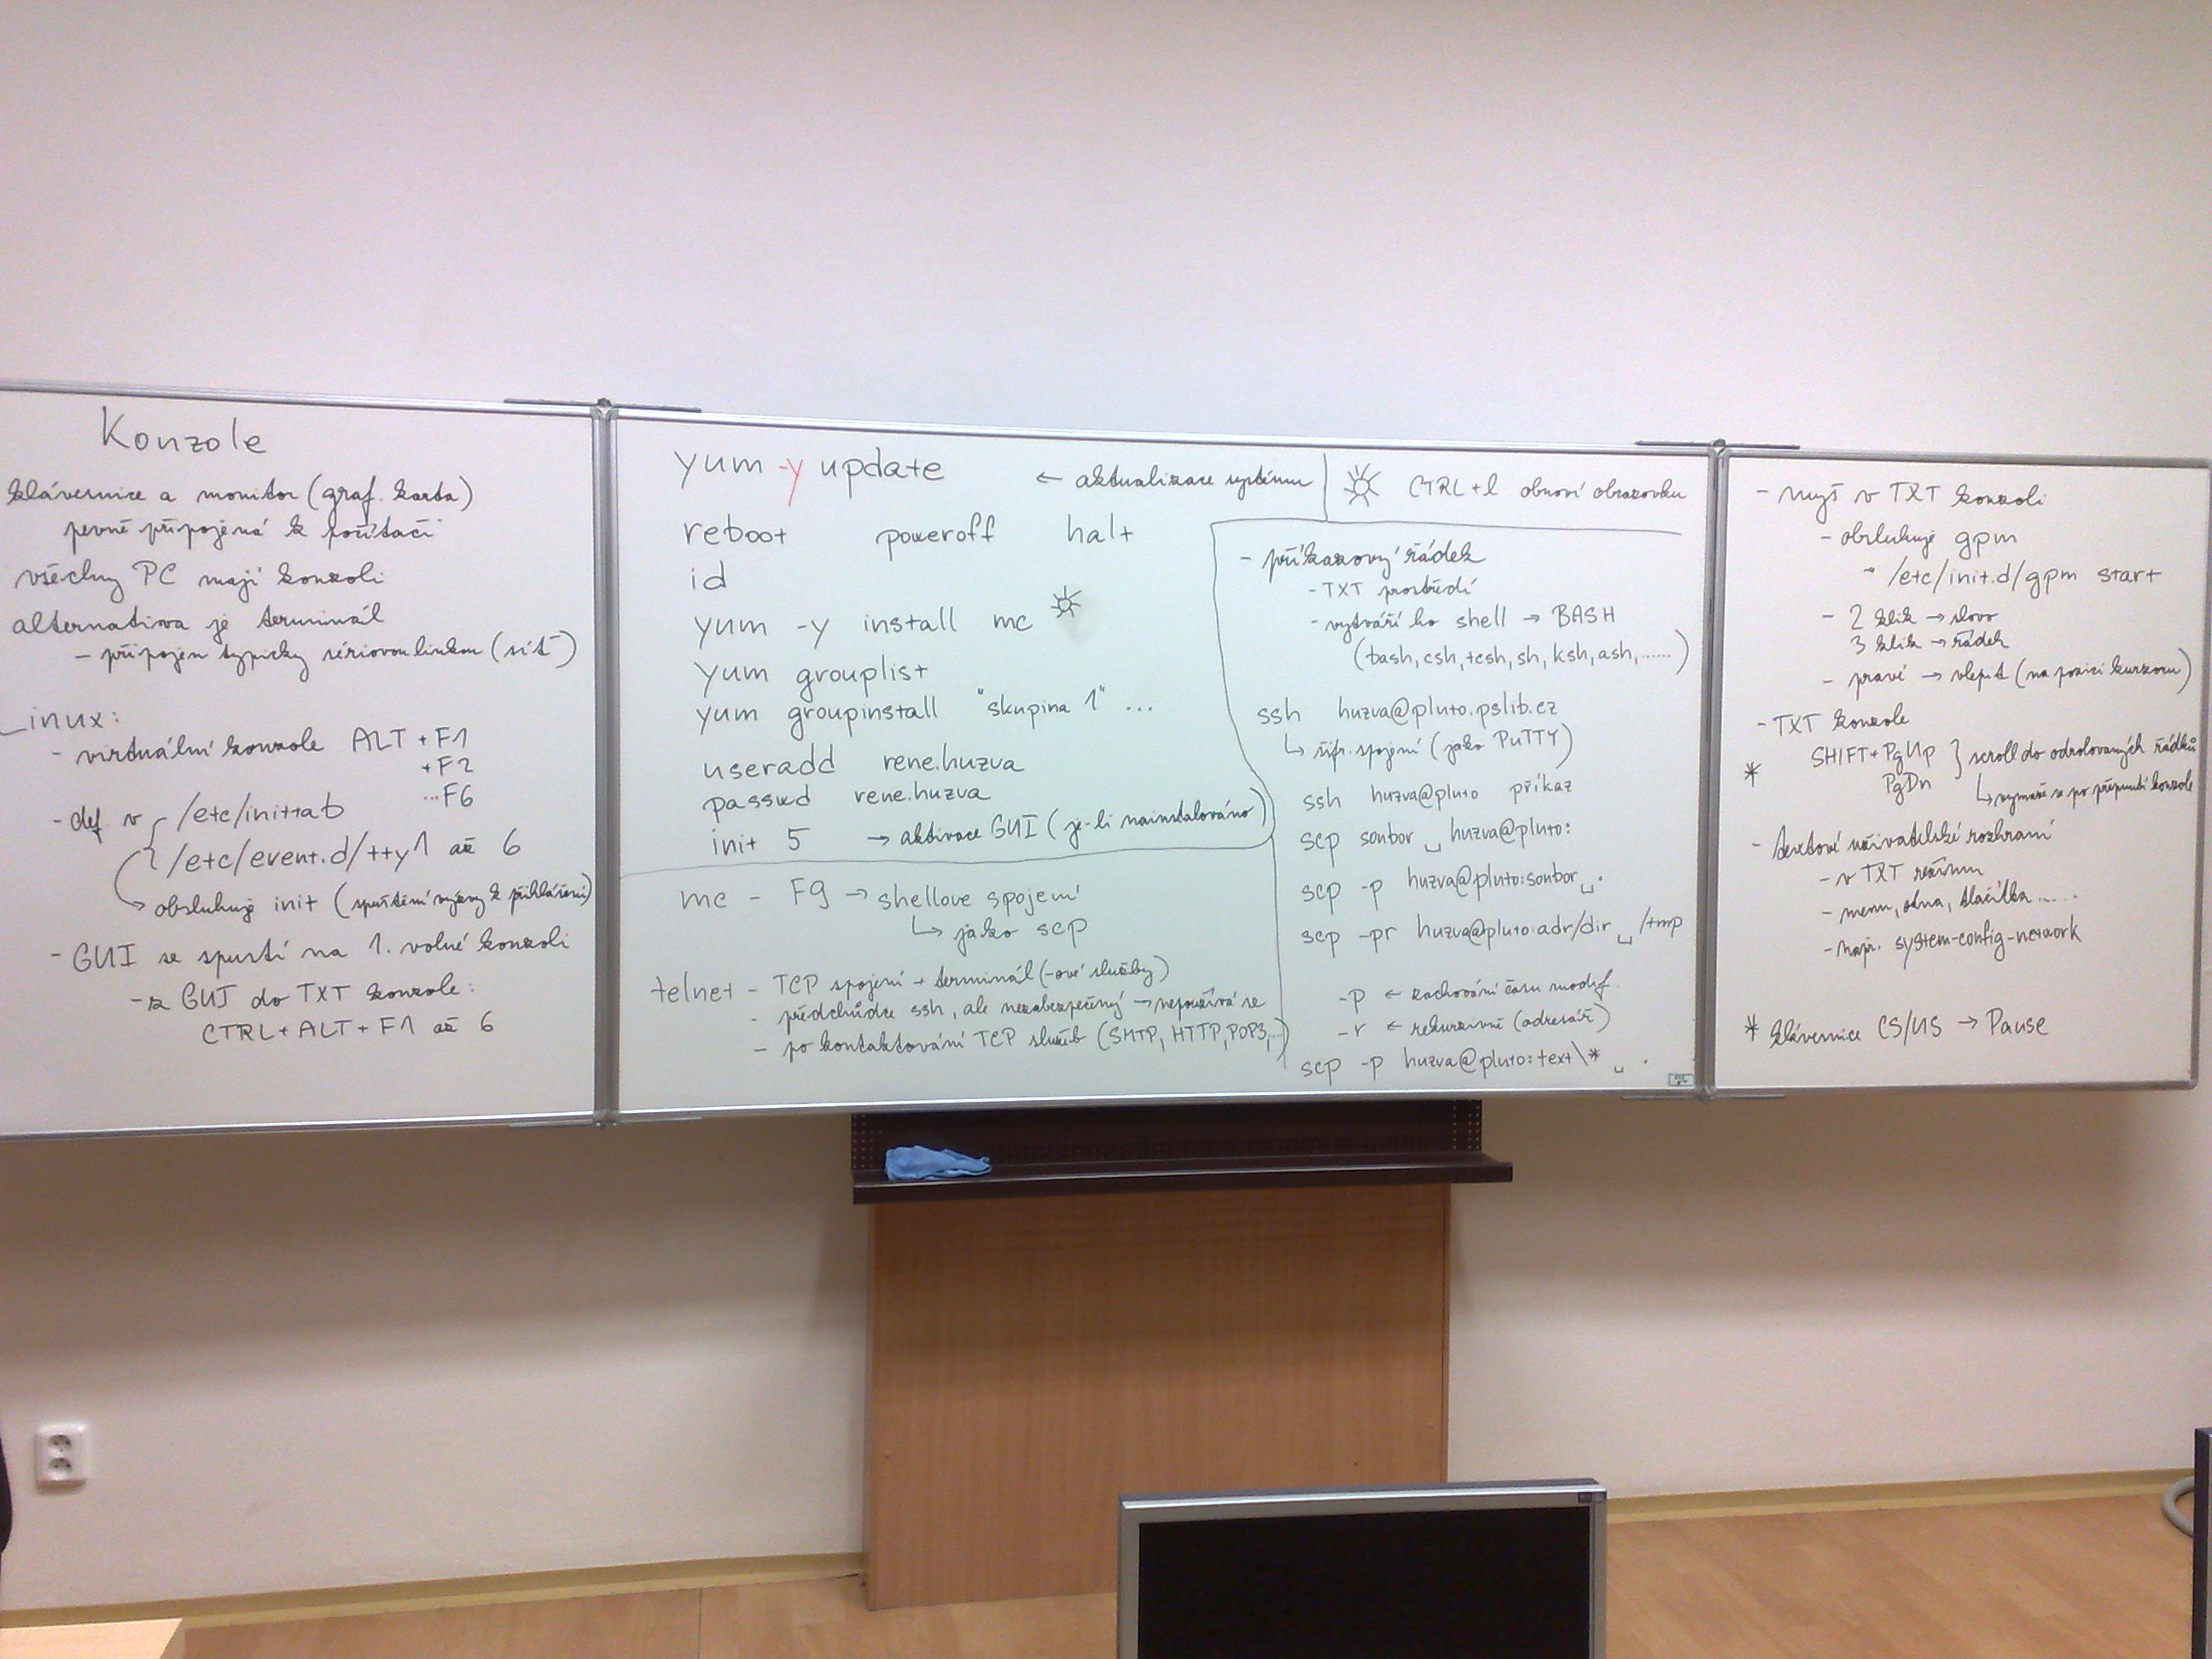 Konzole
klávesnice a monitor (graf. karta)
pevně připojená k počítači
všechny PC mají konzoli
alternativa je terminál
- připojen typicky sériovou linkou (síť)
Linux:
- virtuální konzole ALT + F1
+F2
...F6
- def. v /etc/inittab
/etc/event.d/tty1 až 6
obsluhuje init (spuštění výzvy k přihlášení)
- GUI se spustí na 1. volné konzoli
- z GUI do TXT konzole:
CTRL + ALT + F1 až 6
yum -y update ← aktualizace systému
reboot poweroff halt
id
yum -y install mc
yum grouplist
yum groupinstall "skupina 1" ...
useradd rene.huzva
passwd rene.huzva
init 5 → aktivace GUI (je-li nainstalováno)
mc - F9 → shellove spojení
↳ jako scp
telnet - TCP spojení + terminál (-ové služby)
- předchůdce ssh, ale nezabezpečený → nepoužívá se
- po kontaktování TCP služeb (SMTP, HTTP, POP3,...)
CTRL+l obnoví obrazovku
- příkazový řádek
- TXT prostředí
- vytváří ho shell → BASH
(bash, csh, tcsh, sh, ksh, ash, ......)
ssh huzva@pluto.pslib.cz
↳ šifr. spojení (jako PuTTY)
ssh huzva@pluto příkaz
scp soubor ␣ huzva@pluto:
scp -p huzva@pluto:soubor ␣ .
scp -pr huzva@pluto:adr/dir ␣ /tmp
-p ← zachování času modif.
-r ← rekurzivně (adresář)
scp -p huzva@pluto:text\* ␣ .
- myš v TXT konzoli
- obsluhuje gpm
- /etc/init.d/gpm start
- 2 klik → slovo
3 klik → řádek
- pravé → vlepit (na pozici kurzoru)
- TXT konzole
* SHIFT + PgUp } scroll do odrolovaných řádků
PgDn ↳ vymaže se po přepnutí konzole
- textové uživatelské rozhraní
- v TXT režimu
- menu, okna, tlačítka.....
- např. system-config-network
* klávesnice CS/US → Pause